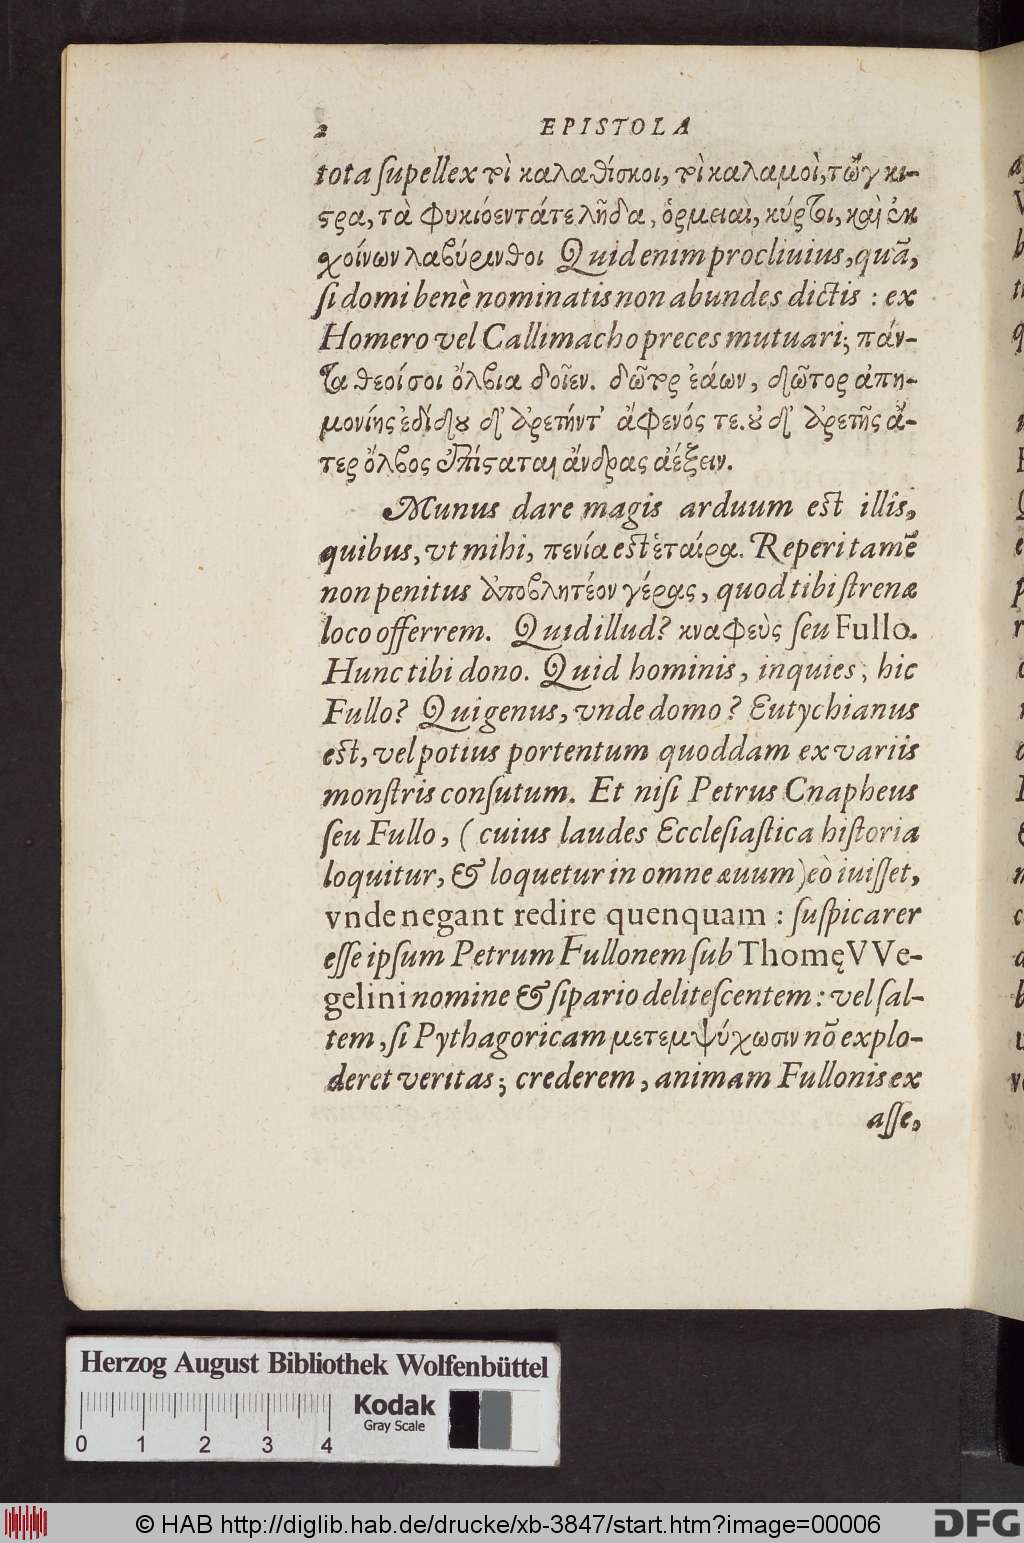 2 EPISTOLA
tota ſupellex τοὶ καλαθίσκοι, τοὶ καλαμοὶ, τὤγκι-
στρα, τὰ φυκιόεντάτε λῆδα, ὁρμειαὶ, κύρτοι, καὶ ἐκ
χοίνων λαβύρινθοι Quid enim procliuius, quã,
ſi domi benè nominatis non abundes dictis : ex
Homero vel Callimacho preces mutuari; πάν-
τα θεοί σοι ὄλβια δοῖεν. δῶτορ ἐάων, δῶτορ ἀπη-
μονίης ἐδίδου δ' ἀρετήντ' ἀφενός τε. ὐ δ' ἀρετῆς ἄ-
τερ ὄλβος ἐπίσταται ἄνδρας ἀέξειν.
Munus dare magis arduum est illis,
quibus, vt mihi, πενία est ἑταίρα. Reperi tamẽ
non penitus ἀποβλητέον γέρας, quod tibi ſtrenæ
loco offerrem. Quid illud? κναφεὺς ſeu Fullo.
Hunc tibi dono. Quid hominis, inquies, hic
Fullo? Qui genus, vnde domo? Eutychianus
est, vel potius portentum quoddam ex variis
monſtris conſutum. Et niſi Petrus Cnapheus
ſeu Fullo, (cuius laudes Eccleſiaſtica hiſtoria
loquitur, & loquetur in omne æuum) eò iuiſſet,
vnde negant redire quenquam : ſuſpicarer
eſſe ipſum Petrum Fullonem ſub Thomę VVe-
gelini nomine & ſipario deliteſcentem : vel ſal-
tem, ſi Pythagoricam μετεμψύχωσιν nõ explo-
deret veritas; crederem, animam Fullonis ex
aſſe,
Herzog August Bibliothek Wolfenbüttel
Kodak
Gray Scale
0 1 2 3 4
© HAB http://diglib.hab.de/drucke/xb-3847/start.htm?image=00006
DFG